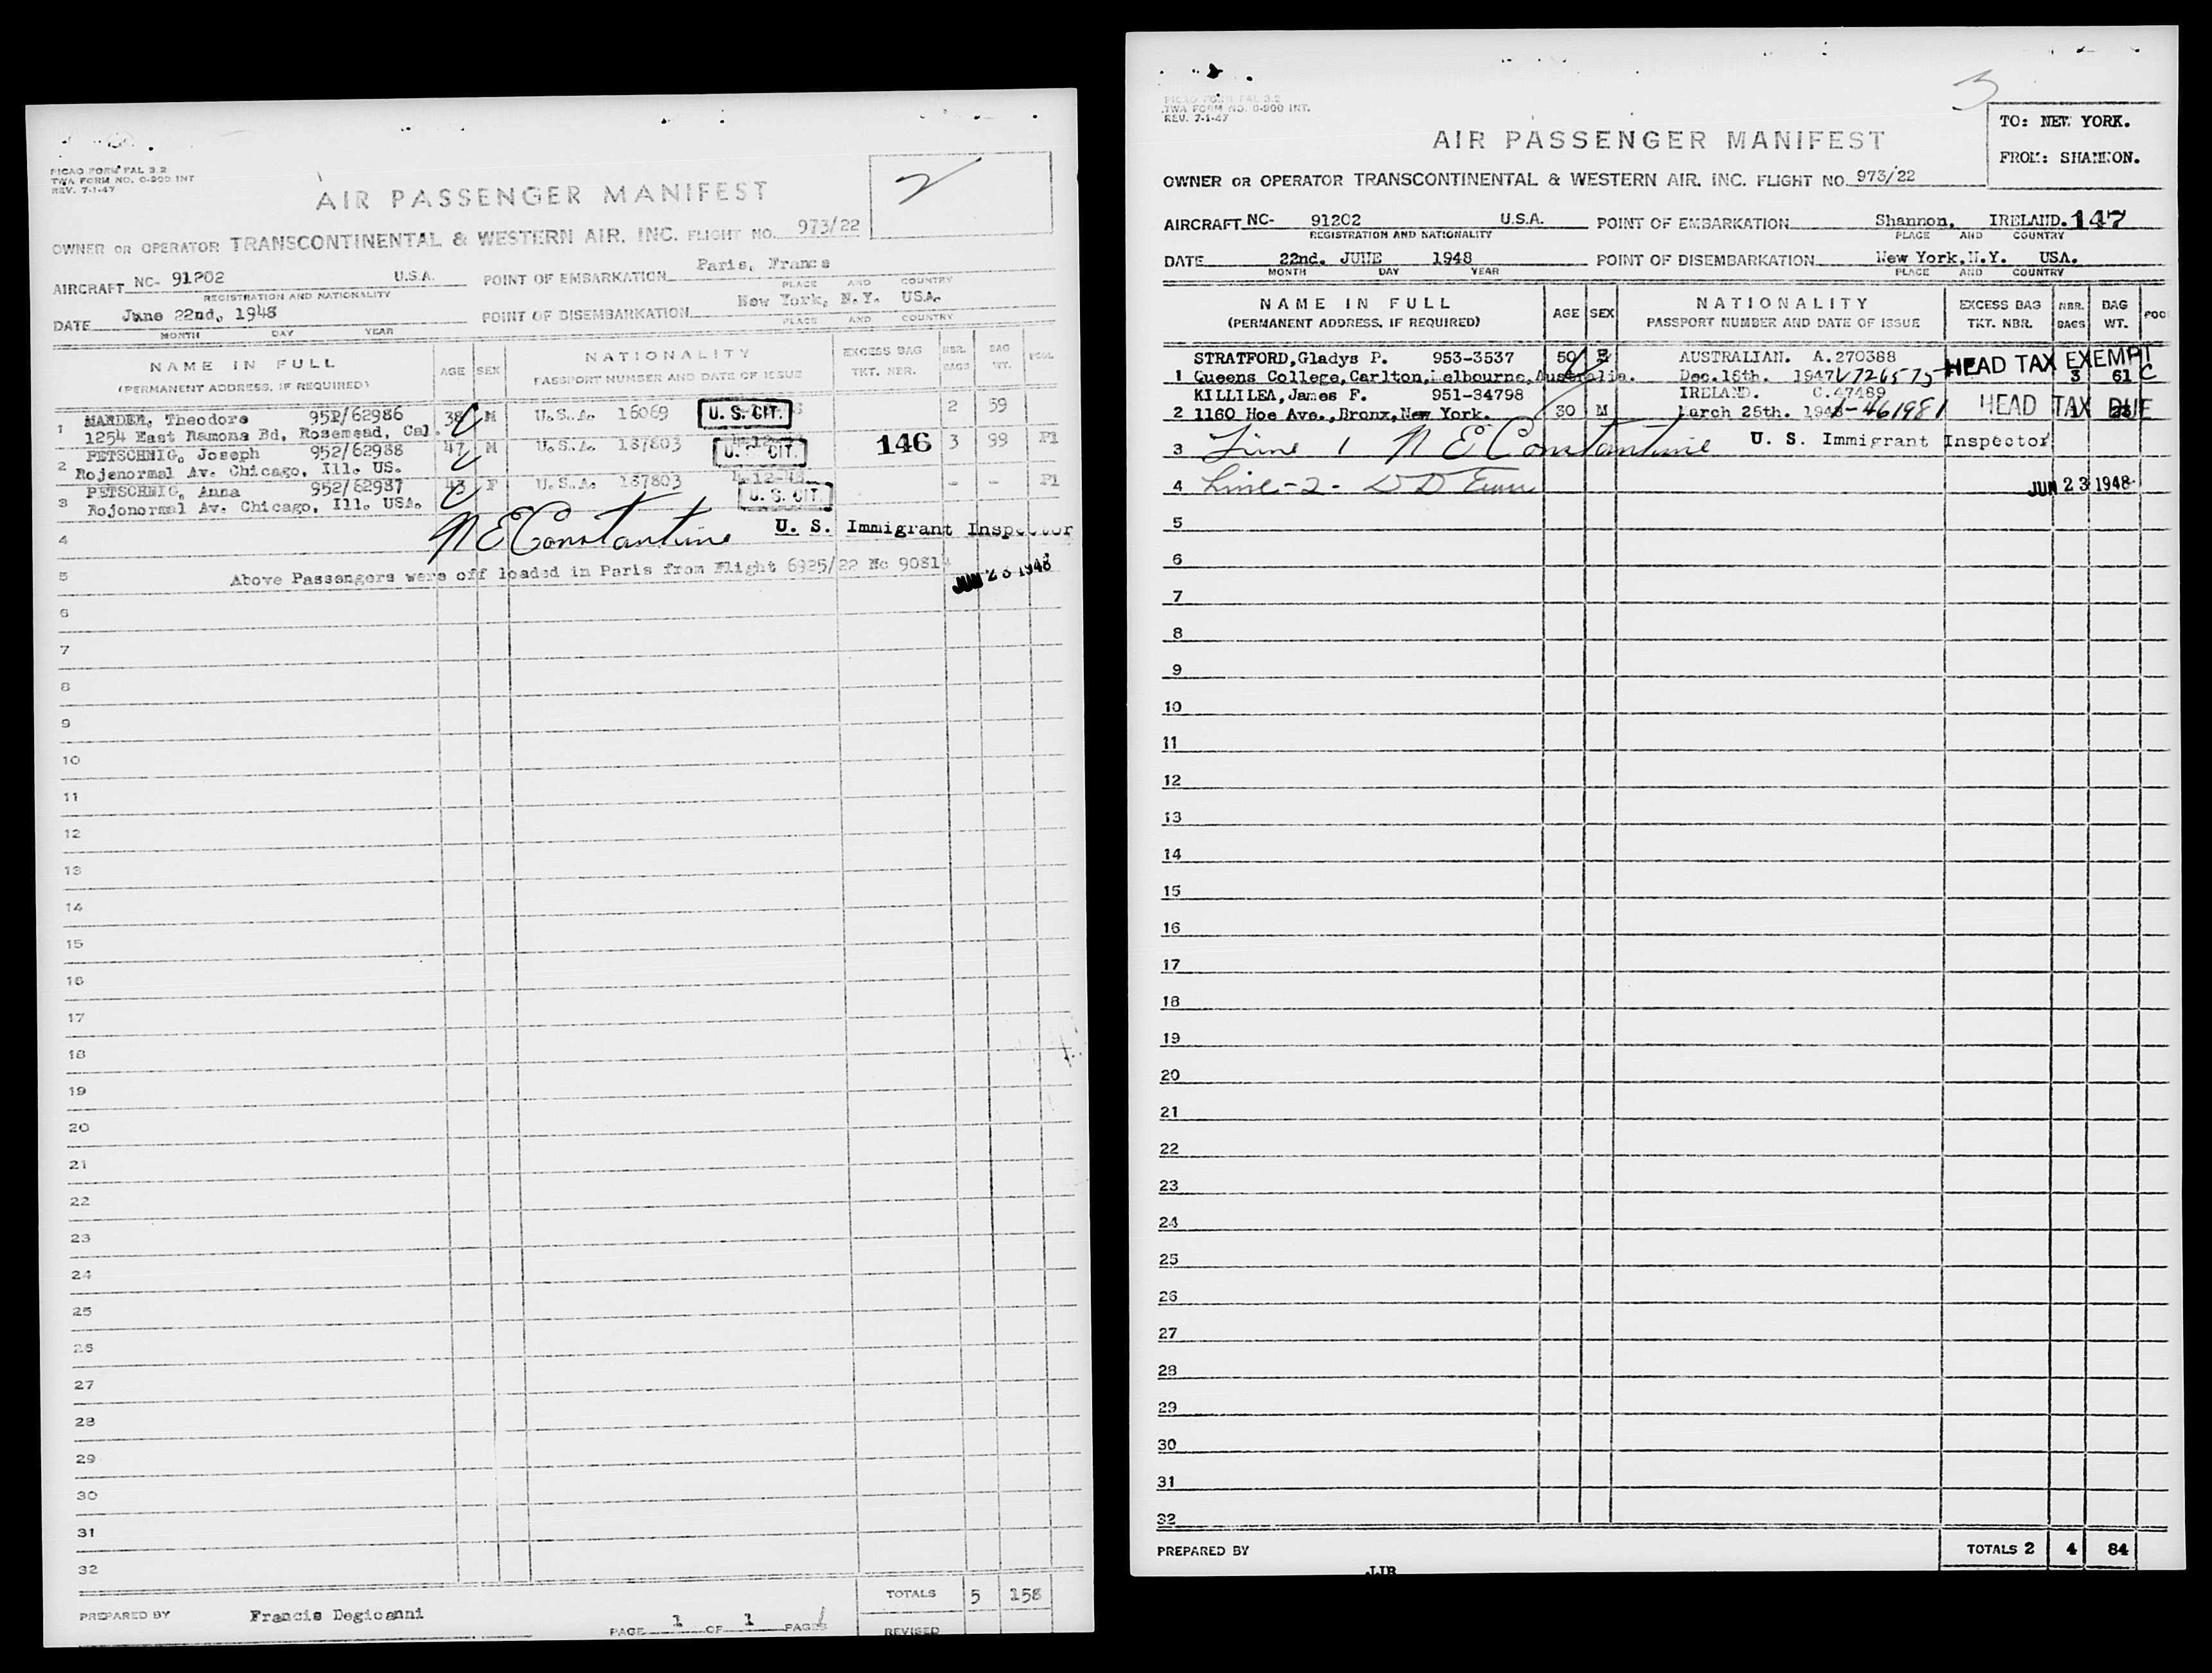 PICAO FORM FAL 3.2
TWA FORM NO. O-900 INT
REV. 7-1-47
2
AIR PASSENGER MANIFEST
OWNER OR OPERATOR TRANSCONTINENTAL & WESTERN AIR, INC. FLIGHT NO. 973/22
AIRCRAFT NC- 91202 U.S.A. POINT OF EMBARKATION Paris, France
REGISTRATION AND NATIONALITY PLACE AND COUNTRY
DATE June 22nd, 1948 POINT OF DISEMBARKATION New York, N.Y. USA.
MONTH DAY YEAR PLACE AND COUNTRY
NAME IN FULL AGE SEX NATIONALITY EXCESS BAG NBR. BAG POOL
(PERMANENT ADDRESS, IF REQUIRED) PASSPORT NUMBER AND DATE OF ISSUE TKT. NBR. BAGS WT.
1 Theodore 952/62986 38 M U.S.A. 16069 U. S. CIT. 2 59
1254 East Ramona Bd, Rosemead, Cal.
2 PETSCHNIG, Joseph 952/62988 47 M U.S.A. 187803 U. S. CIT. 146 3 99 P1
Rojenormal Av. Chicago, Ill. US.
3 PETSCHNIG, Anna 952/62987 43 F U.S.A. 187803 U. S. CIT. - - P1
Rojonormal Av. Chicago, Ill. USA.
4 N E Constantine U. S. Immigrant Inspector
5 Above Passengers were off loaded in Paris from Flight 6925/22 Nc 90814
JUN 23 1948
6
7
8
9
10
11
12
13
14
15
16
17
18
19
20
21
22
23
24
25
26
27
28
29
30
31
32
TOTALS 5 158
PREPARED BY Francis Degioanni
PAGE 1 OF 1 PAGES
REVISED
PICAO FORM FAL 3.2
TWA FORM NO. O-900 INT.
REV. 7-1-47
3
TO: NEW YORK.
FROM: SHANNON.
AIR PASSENGER MANIFEST
OWNER OR OPERATOR TRANSCONTINENTAL & WESTERN AIR, INC. FLIGHT NO. 973/22
AIRCRAFT NC- 91202 U.S.A. POINT OF EMBARKATION Shannon, IRELAND. 147
REGISTRATION AND NATIONALITY PLACE AND COUNTRY
DATE 22nd. JUNE 1948 POINT OF DISEMBARKATION New York,N.Y. USA.
MONTH DAY YEAR PLACE AND COUNTRY
NAME IN FULL AGE SEX NATIONALITY EXCESS BAG NBR. BAG
(PERMANENT ADDRESS, IF REQUIRED) PASSPORT NUMBER AND DATE OF ISSUE TKT. NBR. BAGS WT.
STRATFORD,Gladys P. 953-3537 50 F AUSTRALIAN. A.270388 HEAD TAX EXEMPT
1 Queens College,Carlton,Melbourne,Australia. Dec.18th. 1947 V726575 3 61 C
KILLILEA,James F. 951-34798 IRELAND. C.47489
2 1160 Hoe Ave.,Bronx,New York. 30 M March 25th. 1948 I-461981 HEAD TAX DUE
3 Line 1 N E Constantine U. S. Immigrant Inspector
4 Line-2- D D JUN 23 1948
5
6
7
8
9
10
11
12
13
14
15
16
17
18
19
20
21
22
23
24
25
26
27
28
29
30
31
32
PREPARED BY TOTALS 2 4 84
JJR